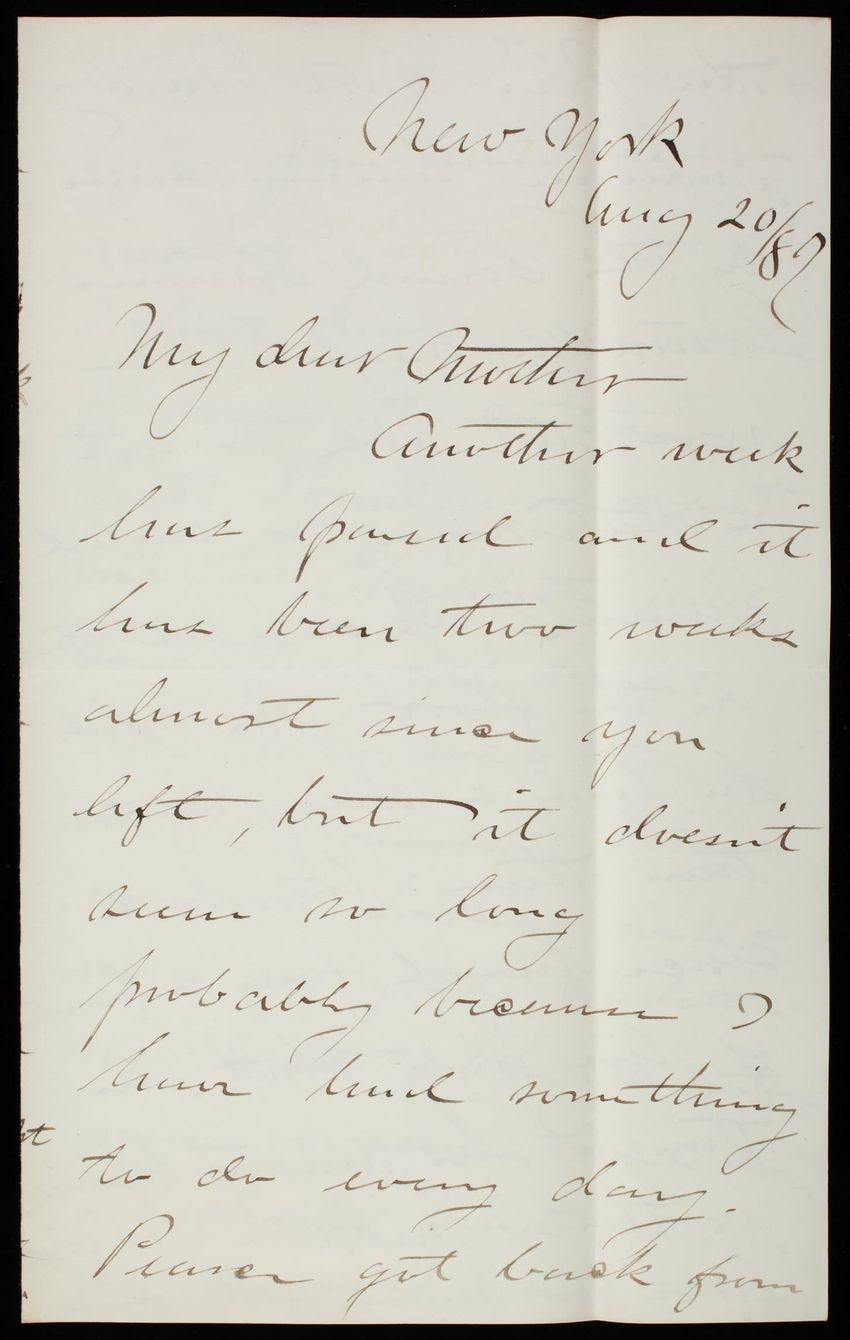 New York
Aug 20/87
My dear Mother
Another week
has passed and it
has been two weeks
almost since you
left, but it doesn't
seem so long
probably because I
have had something
to do every day.
Pearce got back from